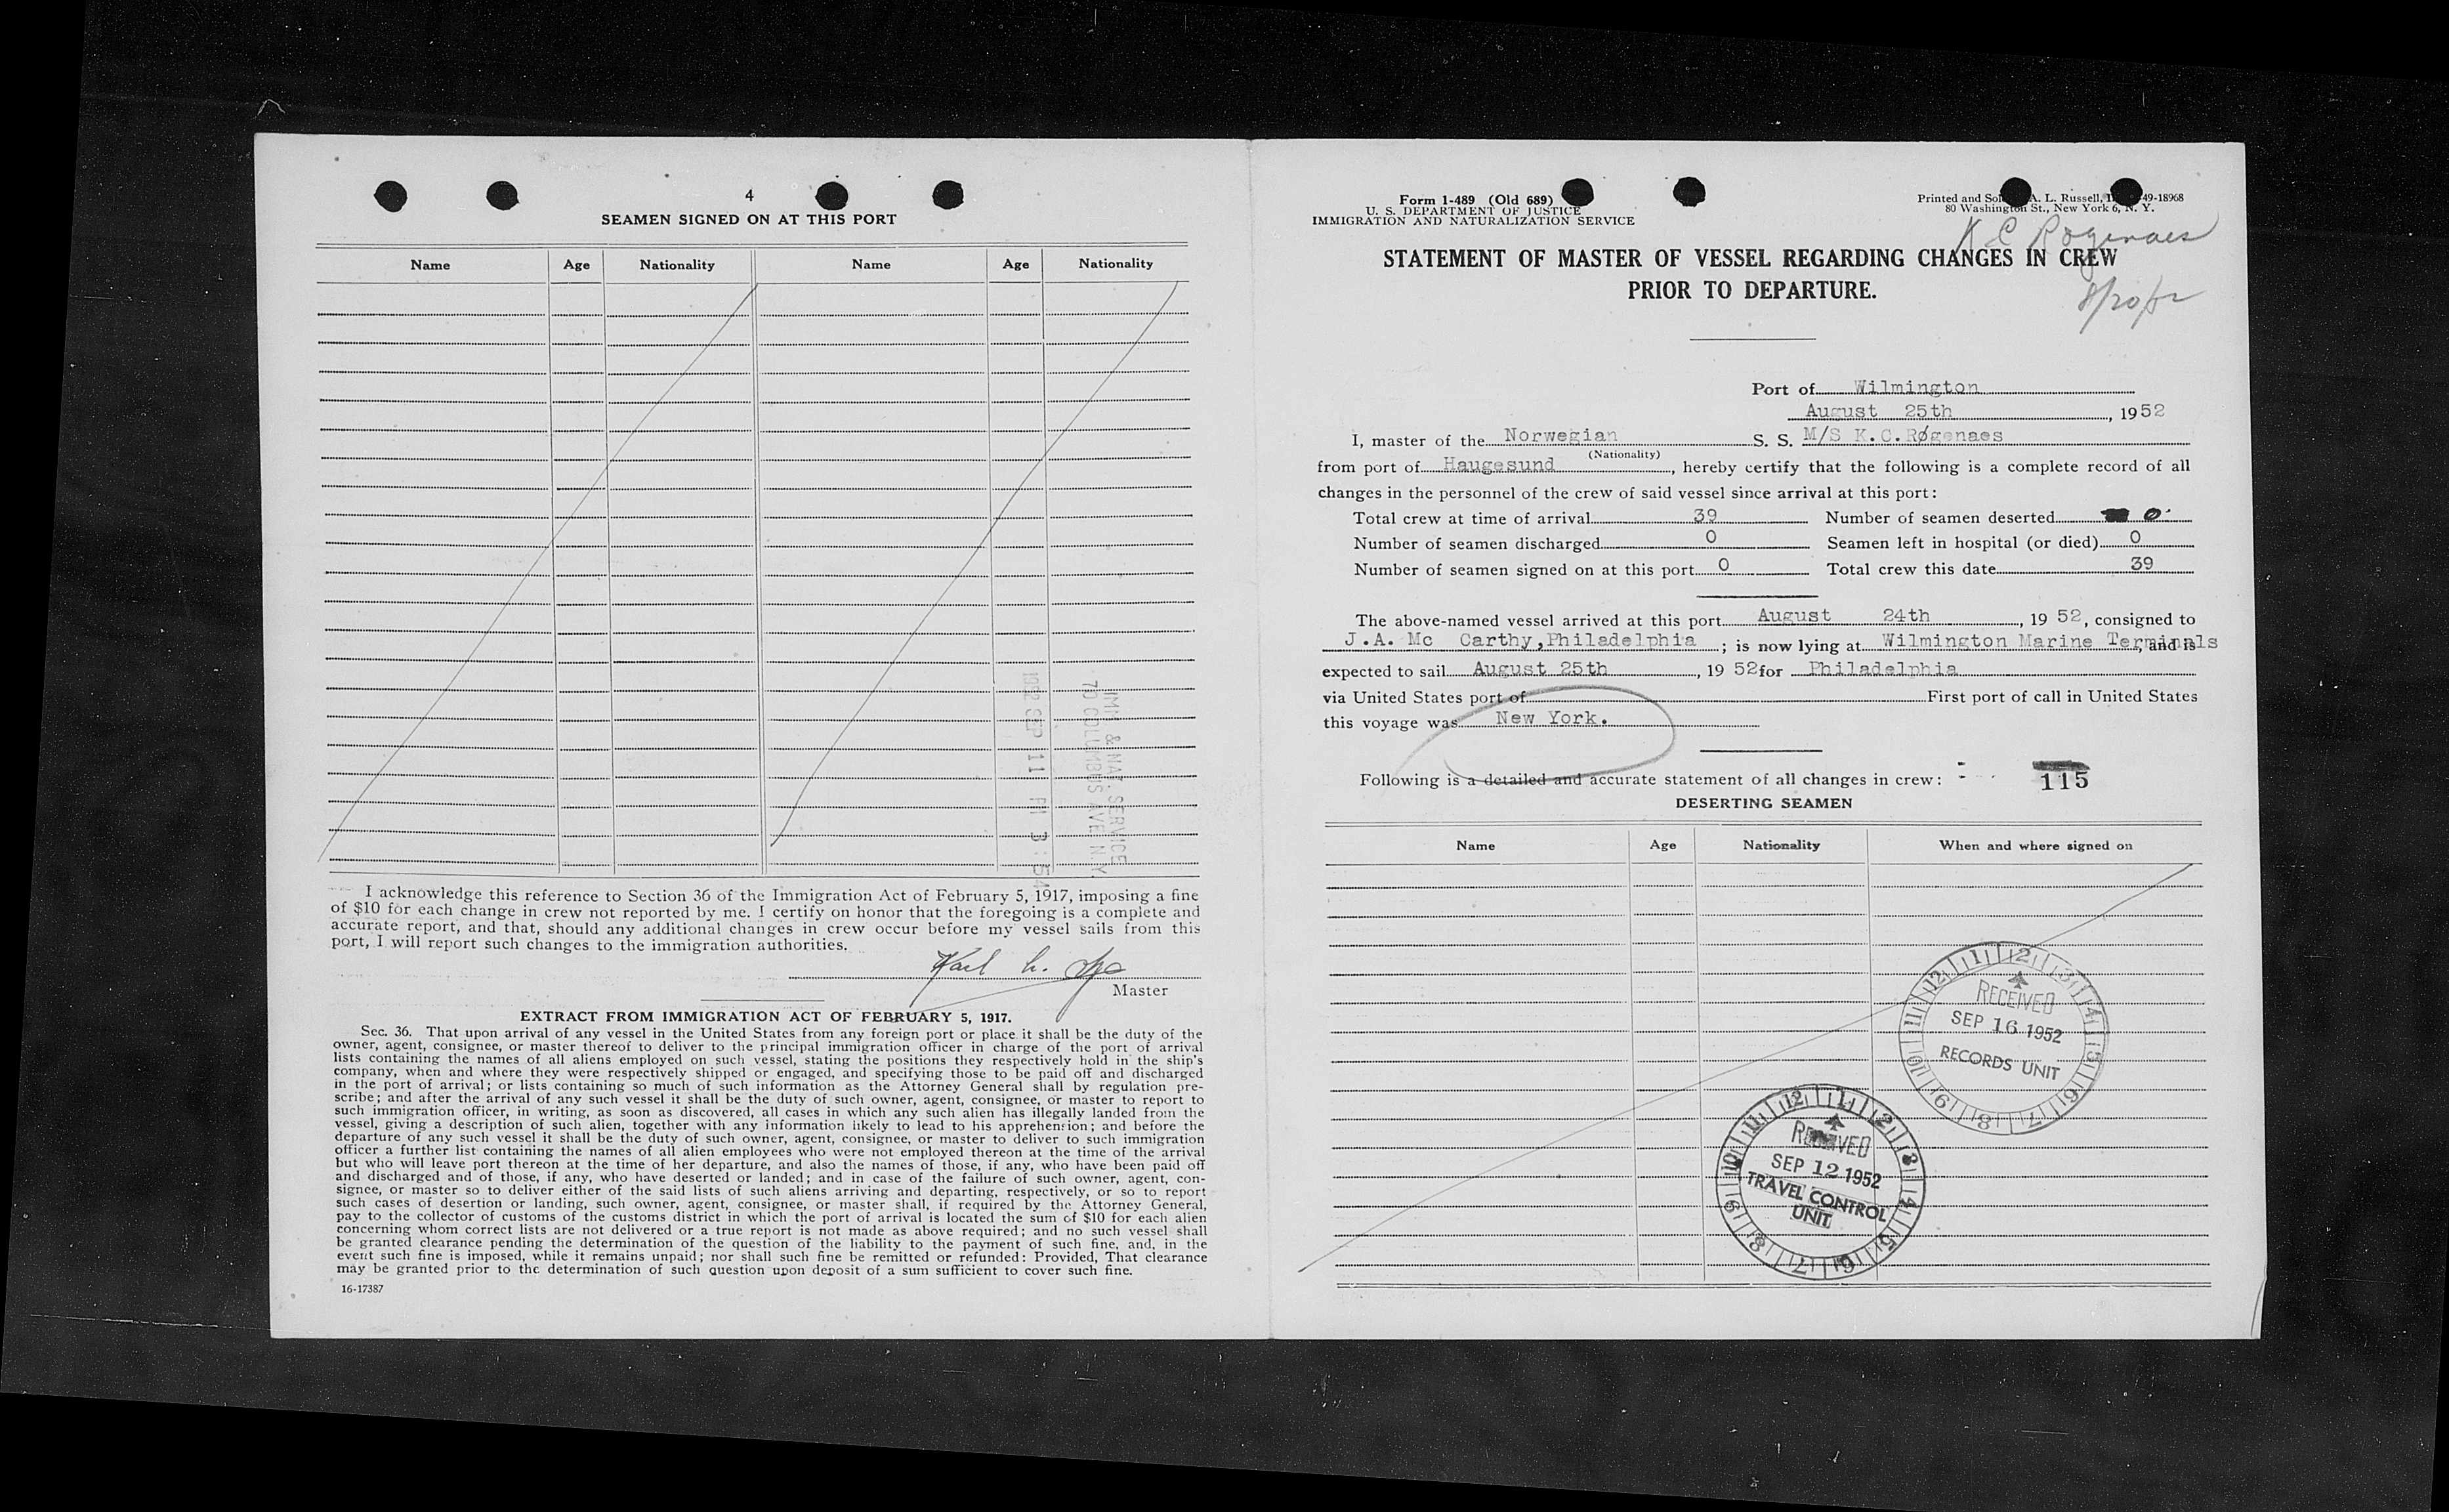 4
SEAMEN SIGNED ON AT THIS PORT
Name Age Nationality Name Age Nationality
IMM. & NAT. SERVICE
70 COLUMBUS AVE. N.Y.
1952 SEP 11 PM 3:54
I acknowledge this reference to Section 36 of the Immigration Act of February 5, 1917, imposing a fine
of $10 for each change in crew not reported by me. I certify on honor that the foregoing is a complete and
accurate report, and that, should any additional changes in crew occur before my vessel sails from this
port, I will report such changes to the immigration authorities.
Karl
Master
EXTRACT FROM IMMIGRATION ACT OF FEBRUARY 5, 1917.
Sec. 36. That upon arrival of any vessel in the United States from any foreign port or place it shall be the duty of the
owner, agent, consignee, or master thereof to deliver to the principal immigration officer in charge of the port of arrival
lists containing the names of all aliens employed on such vessel, stating the positions they respectively hold in the ship's
company, when and where they were respectively shipped or engaged, and specifying those to be paid off and discharged
in the port of arrival; or lists containing so much of such information as the Attorney General shall by regulation pre-
scribe; and after the arrival of any such vessel it shall be the duty of such owner, agent, consignee, or master to report to
such immigration officer, in writing, as soon as discovered, all cases in which any such alien has illegally landed from the
vessel, giving a description of such alien, together with any information likely to lead to his apprehension; and before the
departure of any such vessel it shall be the duty of such owner, agent, consignee, or master to deliver to such immigration
officer a further list containing the names of all alien employees who were not employed thereon at the time of the arrival
but who will leave port thereon at the time of her departure, and also the names of those, if any, who have been paid off
and discharged and of those, if any, who have deserted or landed; and in case of the failure of such owner, agent, con-
signee, or master so to deliver either of the said lists of such aliens arriving and departing, respectively, or so to report
such cases of desertion or landing, such owner, agent, consignee, or master shall, if required by the Attorney General,
pay to the collector of customs of the customs district in which the port of arrival is located the sum of $10 for each alien
concerning whom correct lists are not delivered or a true report is not made as above required; and no such vessel shall
be granted clearance pending the determination of the question of the liability to the payment of such fine, and, in the
event such fine is imposed, while it remains unpaid; nor shall such fine be remitted or refunded: Provided, That clearance
may be granted prior to the determination of such question upon deposit of a sum sufficient to cover such fine.
16-17387
Form I-489 (Old 689)
U. S. DEPARTMENT OF JUSTICE
IMMIGRATION AND NATURALIZATION SERVICE
Printed and A. L. Russell, 49-18968
80 Washington St., New York 6, N. Y.
K C Rogenaes
8/20/52
STATEMENT OF MASTER OF VESSEL REGARDING CHANGES IN CREW
PRIOR TO DEPARTURE.
Port of Wilmington
August 25th, 1952
I, master of the Norwegian S. S. M/S K.C.Røgenaes
(Nationality)
from port of Haugesund, hereby certify that the following is a complete record of all
changes in the personnel of the crew of said vessel since arrival at this port:
Total crew at time of arrival 39 Number of seamen deserted 0
Number of seamen discharged 0 Seamen left in hospital (or died) 0
Number of seamen signed on at this port 0 Total crew this date 39
The above-named vessel arrived at this port August 24th, 19 52, consigned to
J.A. Mc Carthy,Philadelphia; is now lying at Wilmington Marine Terminals, and is
expected to sail August 25th, 19 52 for Philadelphia
via United States port of First port of call in United States
this voyage was New York.
Following is a detailed and accurate statement of all changes in crew:
115
DESERTING SEAMEN
Name Age Nationality When and where signed on
12 1 2 3 4 5 6 7 8 9 10 11
RECEIVED
SEP 16 1952
RECORDS UNIT
12 1 2 3 4 5 6 7 8 9 10 11
RECEIVED
SEP 12 1952
TRAVEL CONTROL
UNIT